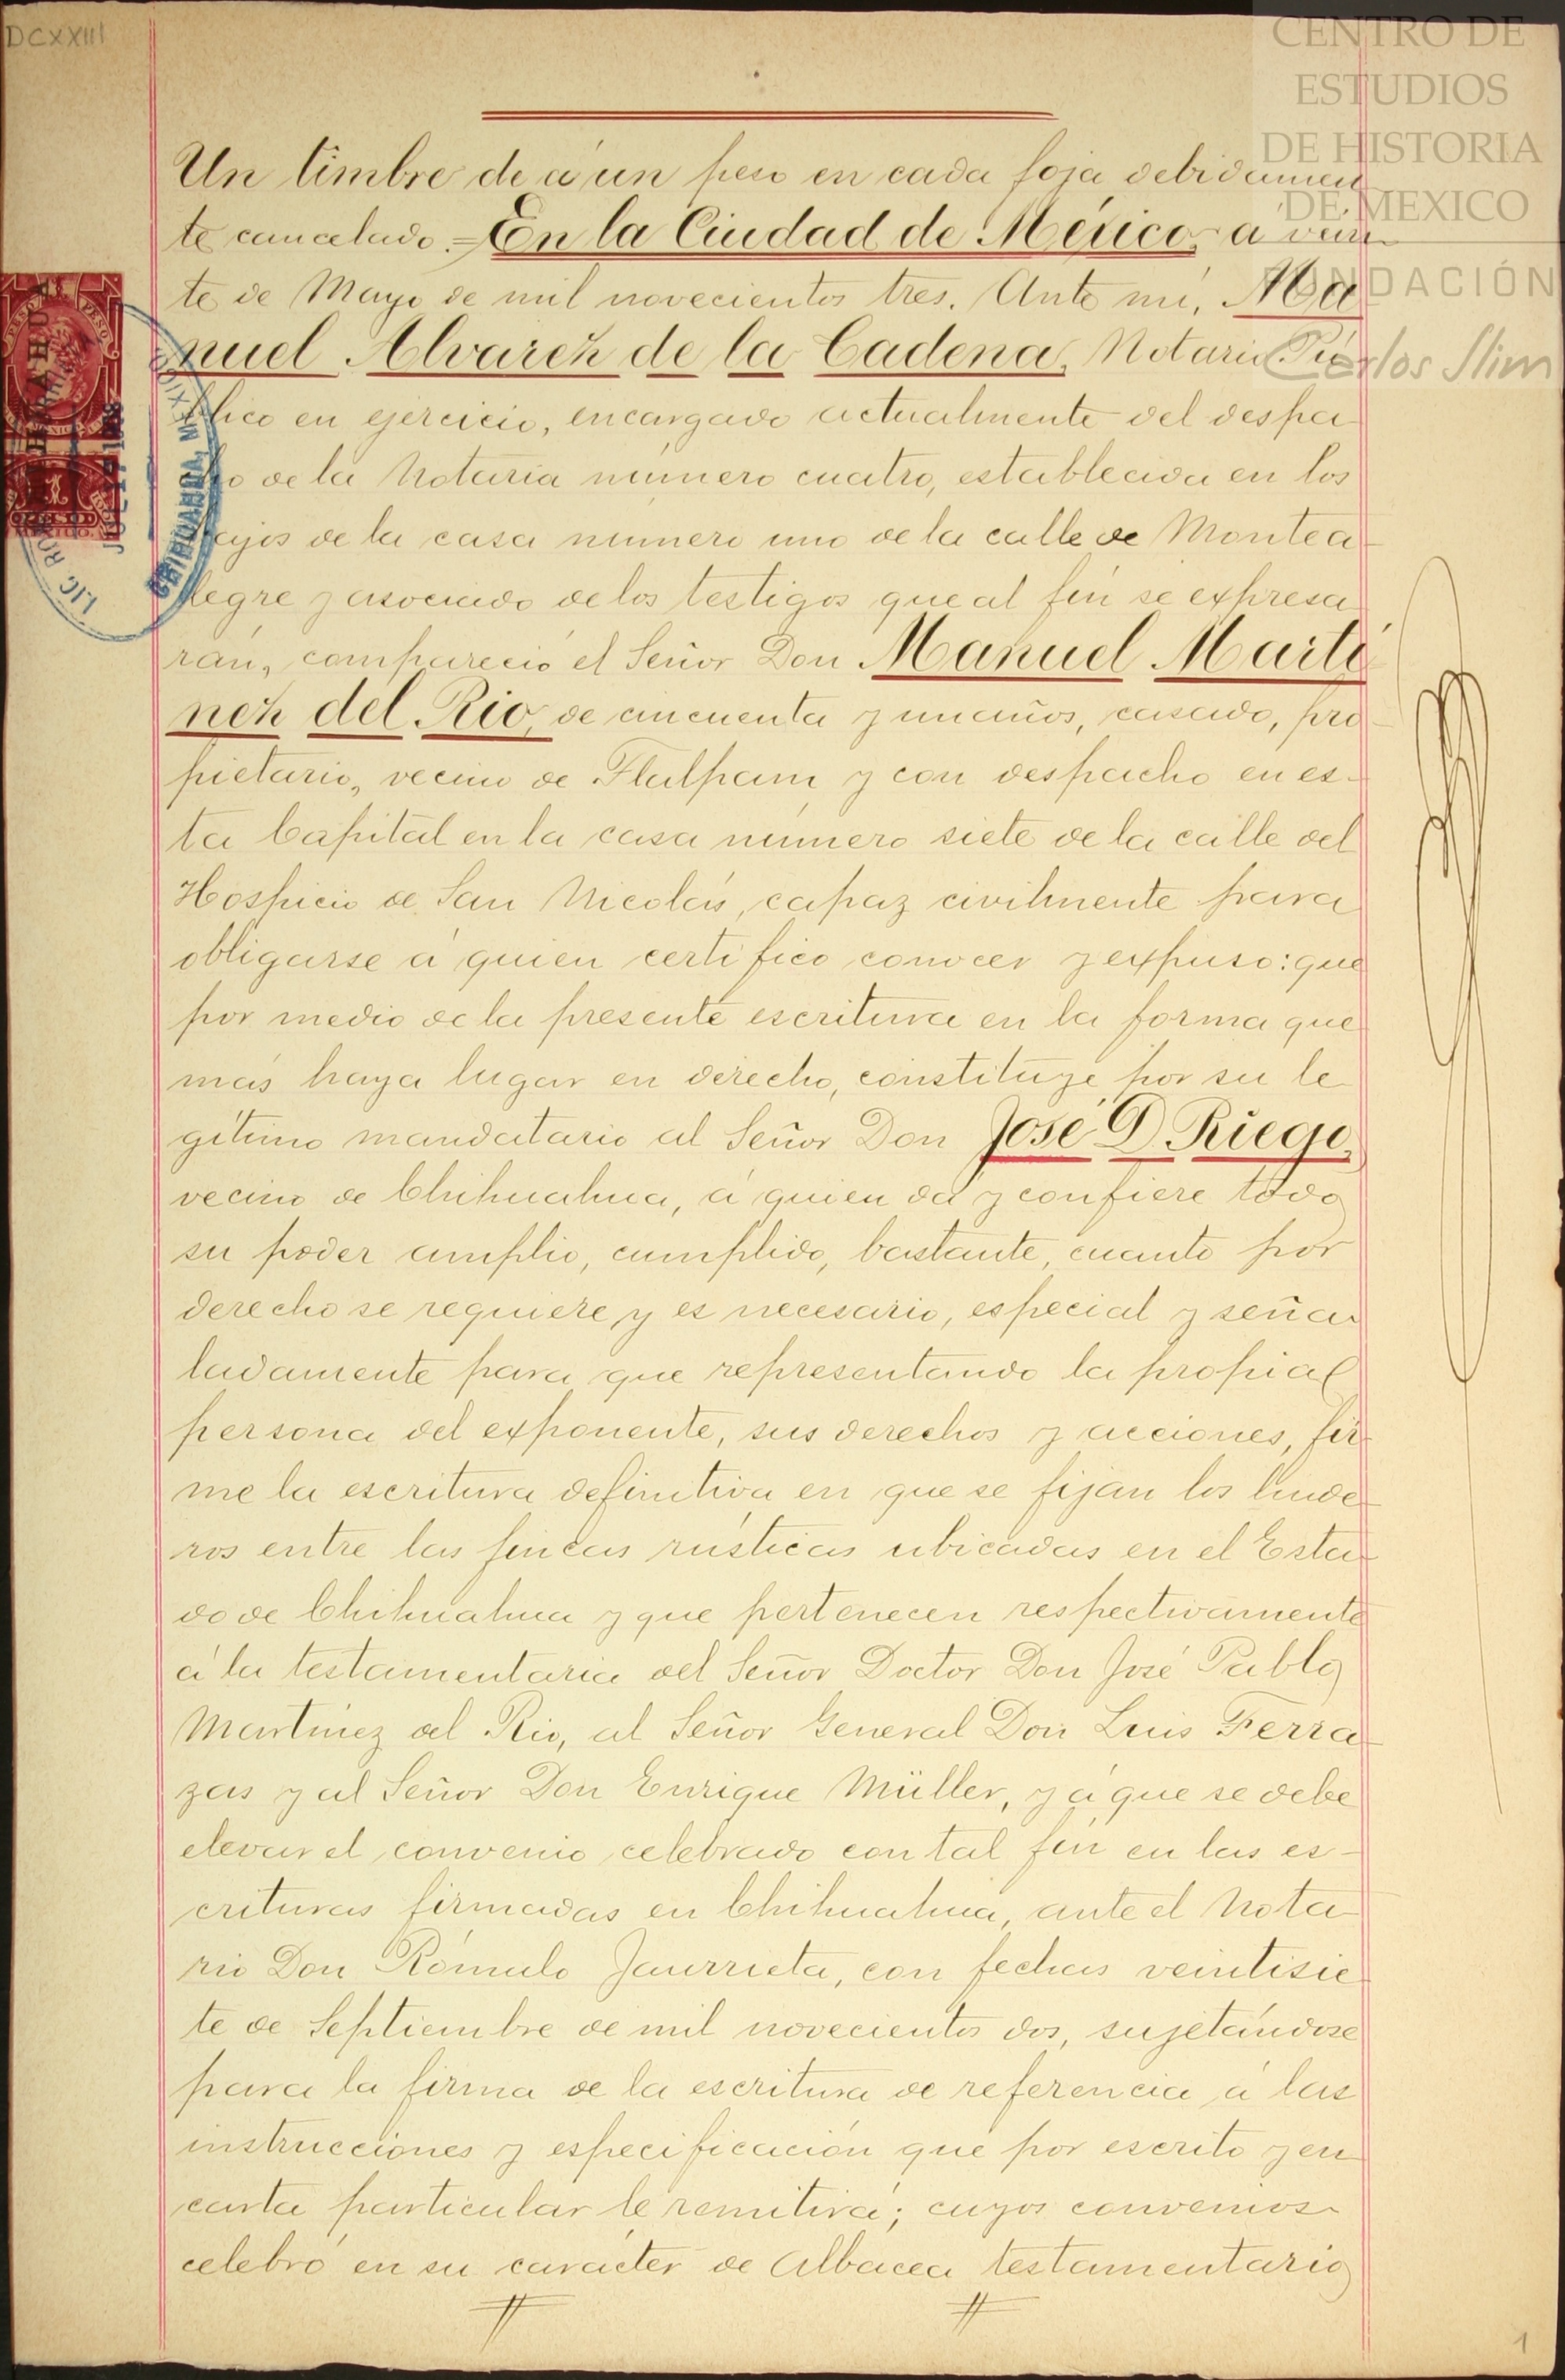 DCXXIII
CENTRO DE
ESTUDIOS
DE HISTORIA
DE MEXICO
FUNDACIÓN
Carlos Slim
Un timbre de á un peso en cada foja debidamen
te cancelado.=En la Ciudad de México, á vein
te de Mayo de mil novecientos tres. Ante mí, Ma
nuel Alvarez de la Cadena, Notario Pú
blico en ejercicio, encargado actualmente del despa
cho de la Notaría número cuatro, establecida en los
bajos de la casa número uno de la calle de Montea
legre y asociado de los testigos que al fín se expresa
rán, compareció el Señor Don Manuel Martí
nez del Rio, de cincuenta y un años, casado, pro
pietario, vecino de Tlalpam y con despacho en es-
ta Capital en la casa número siete de la calle del
Hospicio de San Nicolás, capaz civilmente para
obligarse á quien certifico conocer y expuso: que
por medio de la presente escritura en la forma que
más haya lugar en derecho, constituye por su le
gítimo mandatario al Señor Don José D. Riego,
vecino de Chihuahua, á quien dá y confiere todo
su poder amplio, cumplido, bastante, cuanto por
derecho se requiere y es necesario, especial y seña
ladamente para que representando la propia
persona del exponente, sus derechos y acciones, fir
me la escritura definitiva en que se fijan los linde
ros entre las fincas rústicas ubicadas en el Esta
do de Chihuahua y que pertenecen respectivamente
á la testamentaria del Señor Doctor Don José Pablo
Martínez del Rio, al Señor General Don Luis Terra
zas y al Señor Don Enrique Müller, y á que se debe
elevar el convenio celebrado con tal fín en las es-
crituras firmadas en Chihuahua, ante el Nota
rio Don Rómulo Jaurrieta, con fechas veintisie
te de Septiembre de mil novecientos dos, sujetándose
para la firma de la escritura de referencia á las
instrucciones y especificación que por escrito y en
carta particular le remitirá; cuyos convenios
celebró en su carácter de Albacea testamentario
1